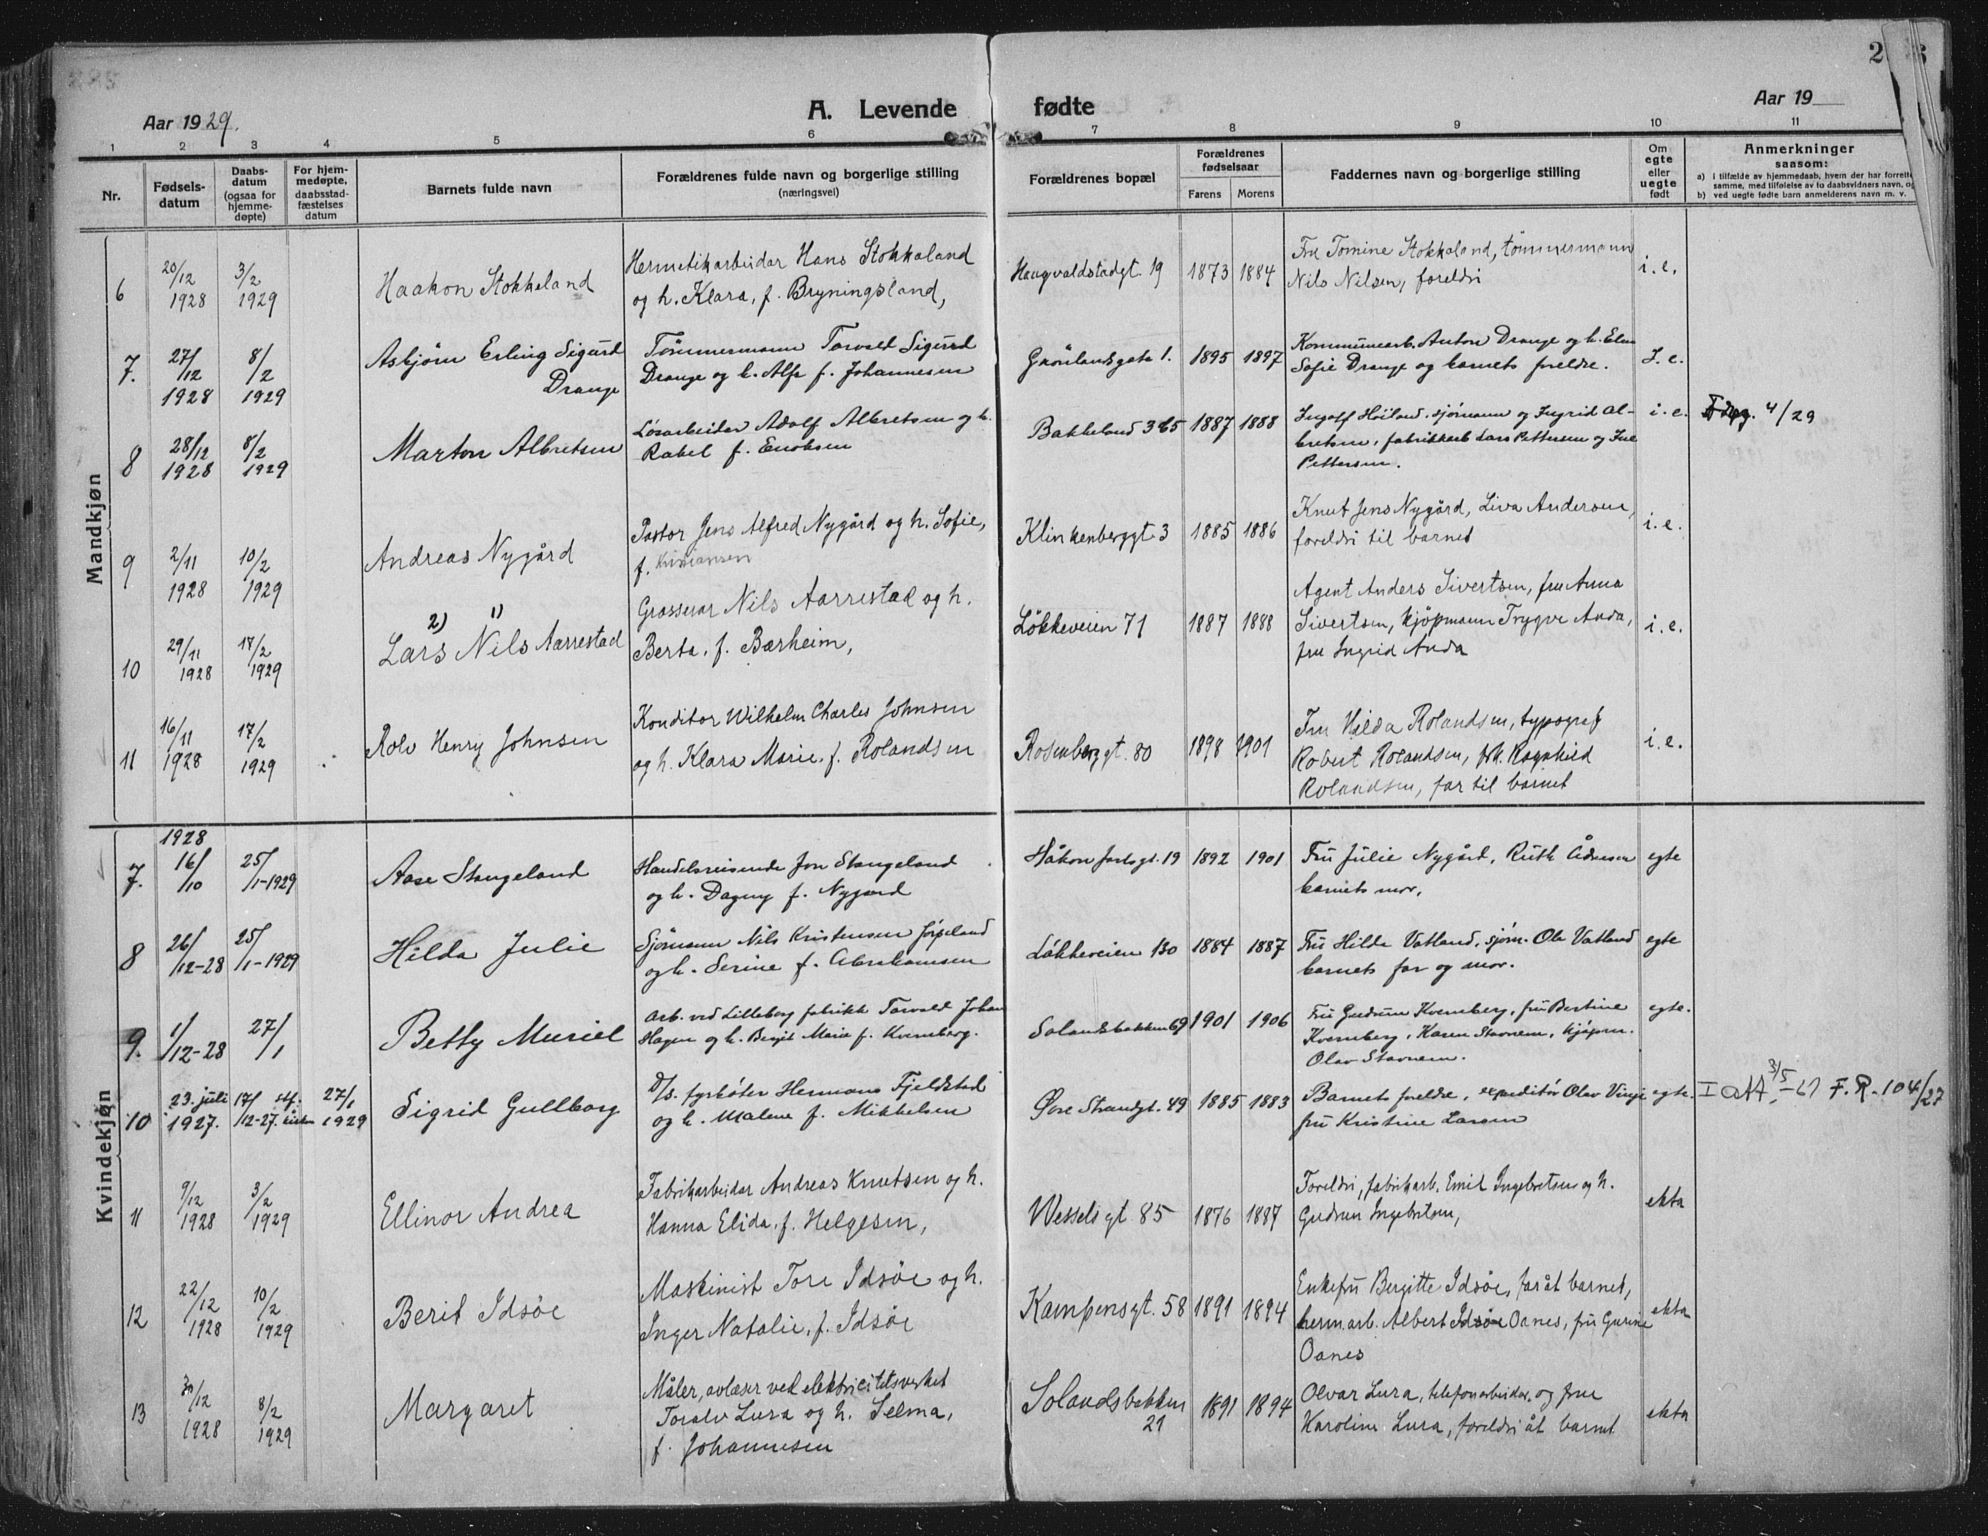 Aar 1929.
A. Levende fødte
Aar 19
1 2 3 4 5 6 7 8 9 10 11
Nr.
Fødsels-
datum
Daabs-
datum
(ogsaa for
hjemme-
døpte)
For hjem-
medøpte,
daabsstad-
fæstelses
datum
Barnets fulde navn
Forældrenes fulde navn og borgerlige stilling
(næringsvei)
Forældrenes bopæl
Forældrenes
fødselsaar
Farens Morens
Faddernes navn og borgerlige stilling
Om
egte
eller
uegte
født
Anmerkninger
saasom:
a) i tilfælde av hjemmedaab, hvem der har forrette
samme, med tilføielse av to daabsvidners navn, og
b) ved uegte fødte barn anmelderens navn m. v.
Mandkjøn
6 20/12 1928 3/2 1929
Haakon Stokkeland
Hermetikarbeidar Hans Stokkaland
og h. Klara, f. Bryningsland,
Haugvaldstadgt. 19 1873 1884
Fru Tomine Stokkaland, tømmermann
Nils Nilsen, foreldri
i. e.
7. 27/12 1928 8/2 1929
Asbjørn Erling Sigurd
Drange
Tømmermann Torvald Sigurd
Drange og h. Alfa f. Johannesen
Grønlandsgata 1. 1895 1897
Kommunearb. Anton Drange og h. Elen
Sofie Drange og barnets foreldre.
I. e.
8 28/12 1928 8/2 1929
Marton Albretsen
Løsarbeider Adolf Albretsen og h.
Rakel f. Enoksen
Bakkeland 365 1887 1888
Ingolf Høiland, sjømann og Ingrid Al-
bretsen, fabrikkarb Lars Pettersen og Ine
Pettersen.
i. e. 4/29
9 2/11 1928 10/2 1929
Andreas Nygård
Pastor Jens Alfred Nygård og h. Sofie,
f. Kristiansen
Klinkenberggt. 3 1885 1886
Knut Jens Nygård, Liva Andersen,
foreldri til barnet
i. e.
10 29/11 1928 17/2 1929
2) 1)
Lars Nils Aarrestad
Grosserar Nils Aarrestad og h.
Berta, f. Bærheim,
Løkkeveien 71 1887 1888
Agent Anders Sivertsen, fru Anna
Sivertsen, kjøpmann Trygve Anda,
fru Ingrid Anda
i. e.
11 16/11 1928 17/2 1929
Rolv Henry Johnsen
Konditor Wilhelm Charles Johnsen
og h. Klara Marie, f. Rolandsen
Rosenberggt. 80 1898 1901
Fru Hilda Rolandsen, typograf
Robert Rolandsen, frk. Ragnhild
Rolandsen, far til barnet
i. e.
Kvindekjøn
7. 1928 16/10 25/1-1929
Aase Stangeland
Handelsreisende Jon Stangeland
og h. Dagny f. Nygaard
Håkon Jarlsgt. 19 1892 1901
Fru Julie Nygård, Ruth
barnets mor.
egte
8 26/12-28 25/1-1929
Hilda Julie
Sjømann Nils Kristensen Jørpeland
og h. Serine f. Abrahamsen
Løkkeveien 130 1884 1887
Fru Hilda Vatland, sjøm. Ole Vatland
barnets far og mor.
egte
9. 1/12-28 27/1
Betty Muriel
Arb. ved Lilleborg fabrikk Torvald Johan
Hagen og h. Bergit Marie f. Kvernberg.
Solandsbakken 69 1901 1906
Fru Gudrun Kvernberg, fru Bertine
Kvernberg, Karen Stavnem, kjøpm.
Olav Stavnem.
egte.
10 23. juli 1927. 17/12-27. 27/1 1929
Sigrid Gullborg
D/s. fyrbøter Hermann Fjeldstad
og h. Malene f. Mikkelsen
Øvre Strandgt. 49 1885 1883
Barnets foreldre, expeditør Olav Vinje
fru Kristine Larsen
egte.
I att. 3/5-67 F. R. 104/27
11 9/12 1928 3/2 1929
Ellinor Andrea
Fabrikarbeidar Andreas Knutsen og h.
Hanna Elida, f. Helgesen,
Wesselsgt 85 1876 1887
Foreldri, fabrikarb. Emil Ingebretsen og h.
Gudrun Ingebretsen,
ekta
12 22/12 1928 10/2 1929
Berit Idsøe
Maskinist Tore Idsøe og h.
Inger Natalie, f. Idsøe
Kampensgt. 58 1891 1894
Enkefru Bergitte Idsøe, far åt barnet,
herm.arb. Albert Idsøe Oanes, fru Gurine
Oanes
ekta
13 30/12 1928 8/2 1929
Margaret
Måler, avlæser ved elektricitetsverket
Toralv Lura og h. Selma,
f. Johannesen
Solandsbakken
29 1891 1894
Olvar Lura, telefonarbeidar og frue
Karoline Lura, foreldri åt barnet
ekta